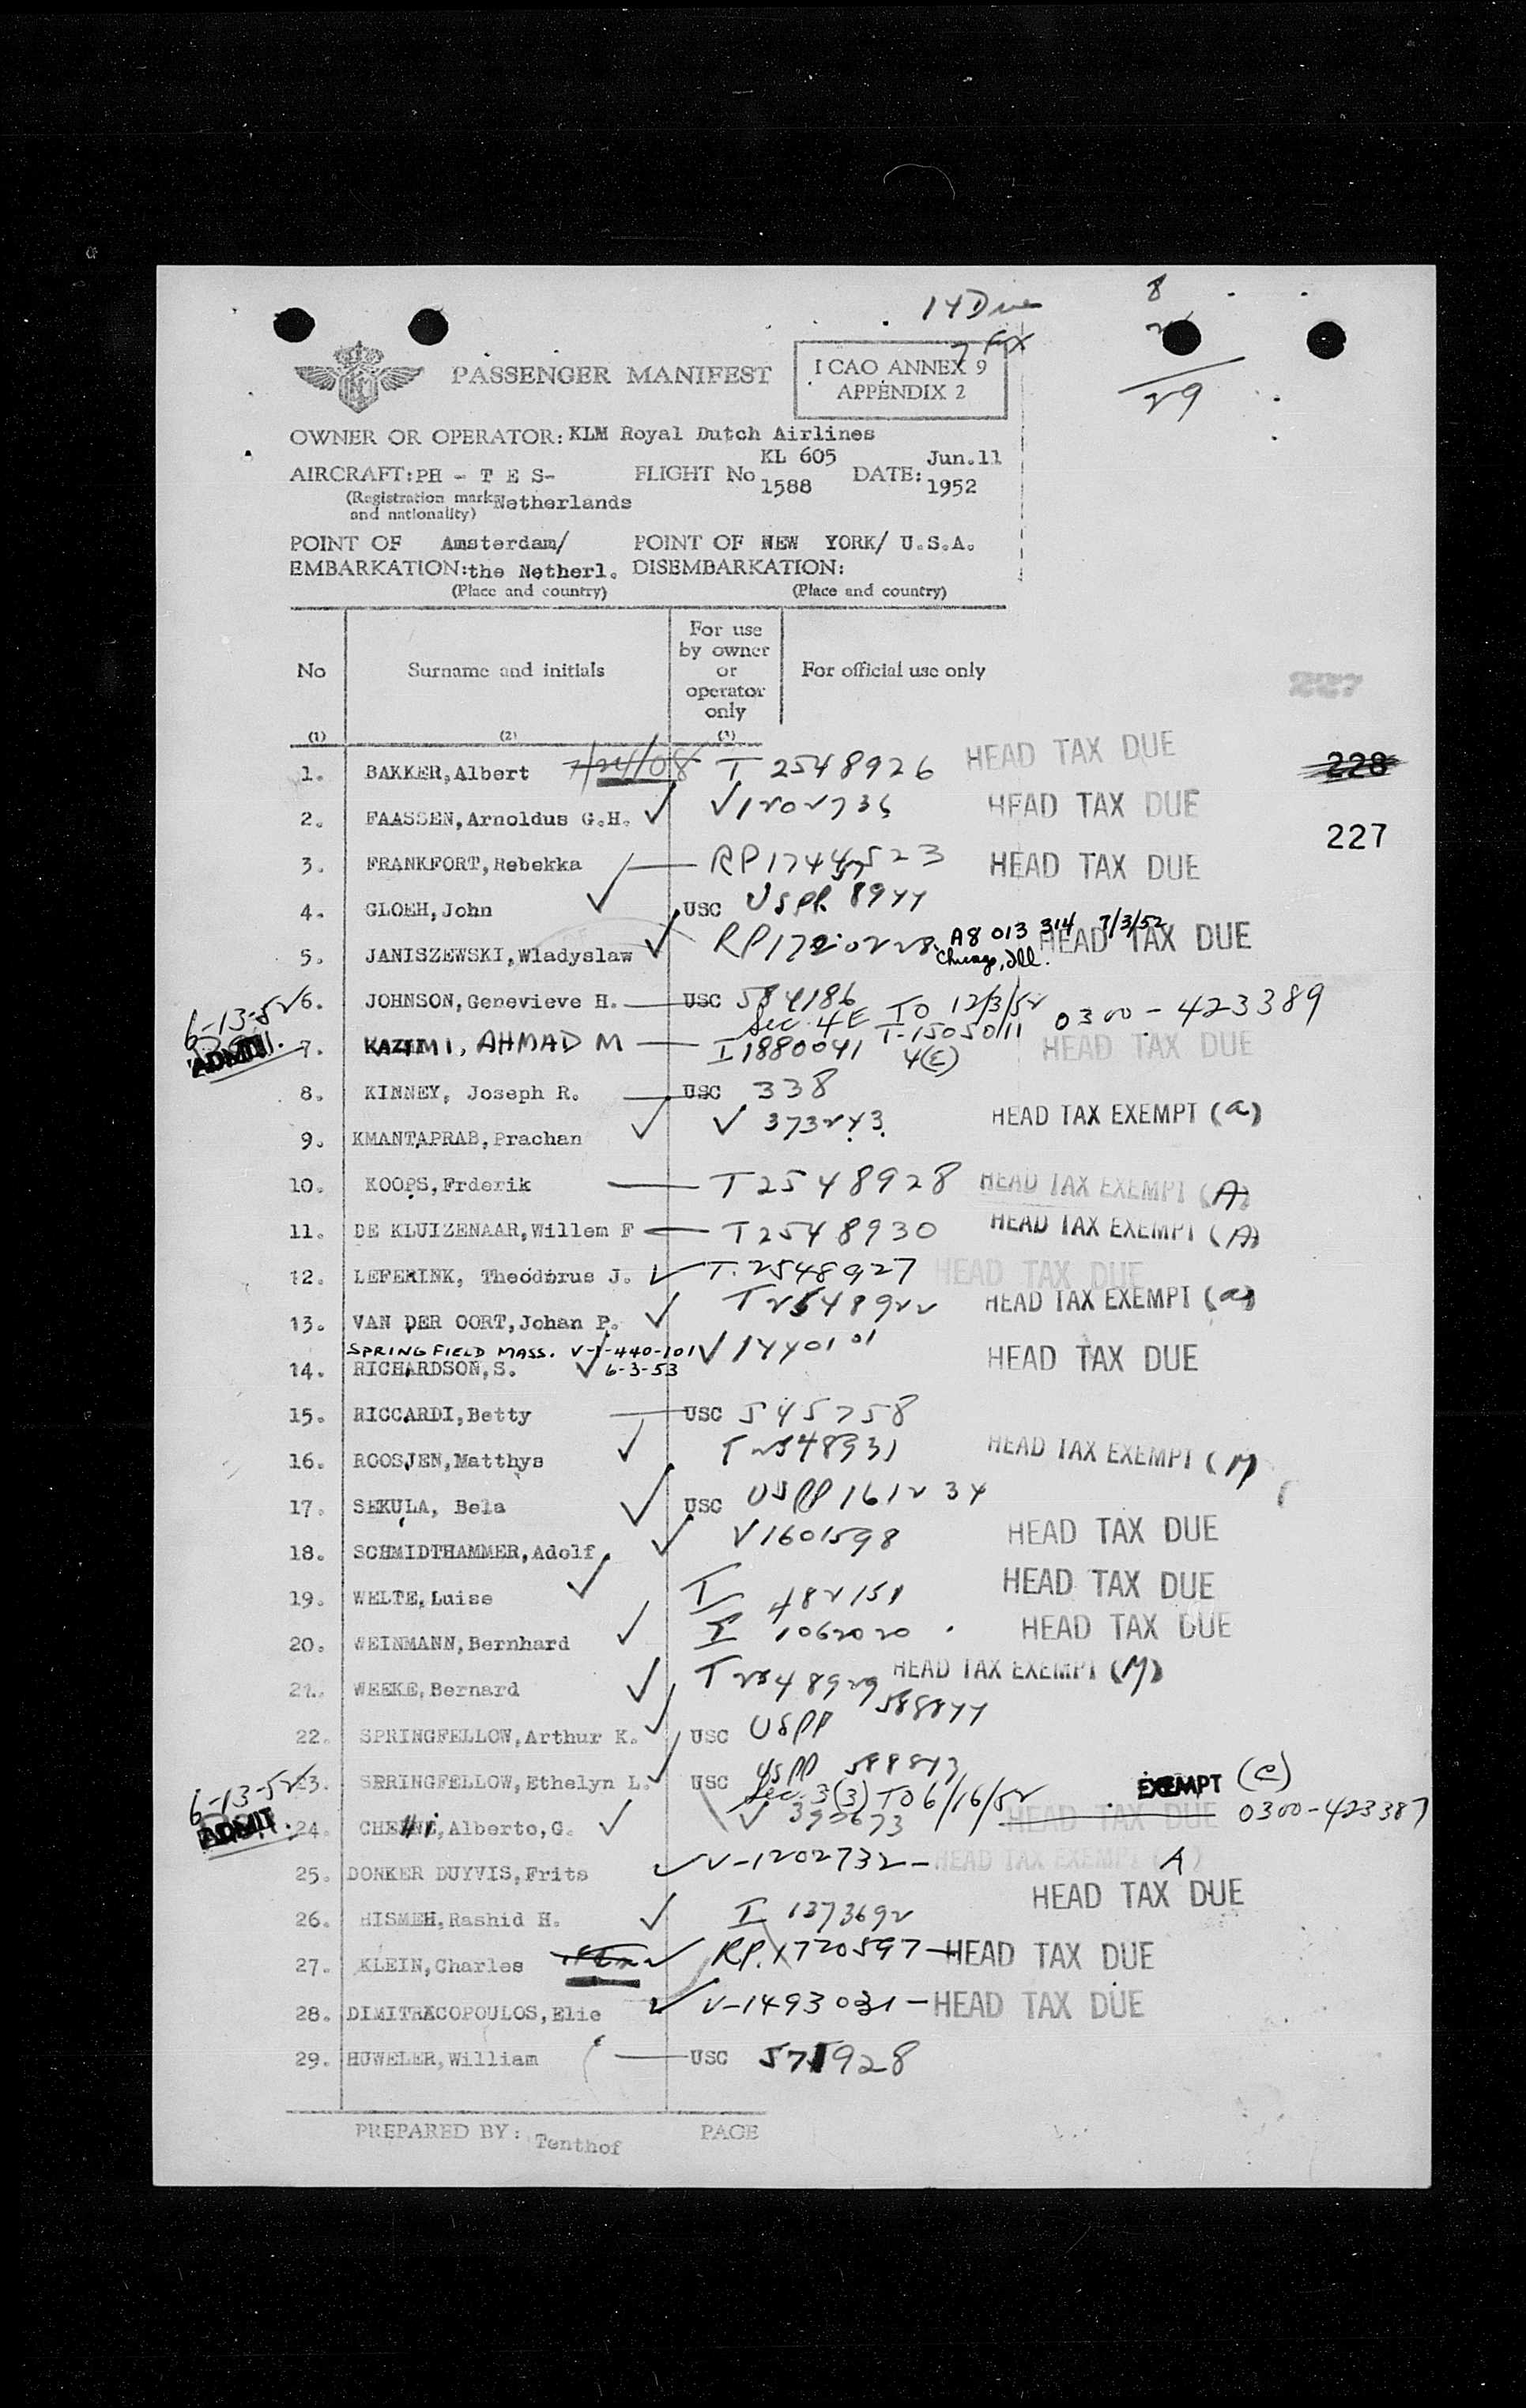 14 Due
7 Ex
8
29
PASSENGER MANIFEST
I CAO ANNEX 9
APPENDIX 2
OWNER OR OPERATOR: KLM Royal Dutch Airlines
AIRCRAFT: PH - T E S-
FLIGHT No KL 605
1588
DATE: Jun.11
1952
(Registration marks Netherlands
and nationality)
POINT OF Amsterdam/ POINT OF NEW YORK/ U.S.A.
EMBARKATION: the Netherl. DISEMBARKATION:
(Place and country) (Place and country)
No Surname and initials For use by owner or operator only For official use only
(1) (2) (3)
227
228
227
1. BAKKER, Albert T 2548926 HEAD TAX DUE
2. FAASSEN, Arnoldus G.H. ✓ V1202736 HEAD TAX DUE
3. FRANKFORT, Rebekka — HEAD TAX DUE
4. GLOEH, John ✓ USC 8944
5. JANISZEWSKI, Wladyslaw ✓ A8 013 314 7/3/52 HEAD TAX DUE
Chicago, Ill.
6. JOHNSON, Genevieve H. — USC 584186
6-13-52 Sec. 4E TO 12/3/52 T-1505011 0300-423389
ADMIT 7. KAZIMI, AHMAD M — I1880041 4(E) HEAD TAX DUE
8. KINNEY, Joseph R. — USC 338
9. KMANTAPRAB, Prachan ✓ V 373243 HEAD TAX EXEMPT (a)
10. KOOPS, Frderik — T2548928 HEAD TAX EXEMPT (A)
11. DE KLUIZENAAR, Willem F — T2548930 HEAD TAX EXEMPT (A)
12. LEFERINK, Theodorus J. ✓ T.2548927 HEAD TAX DUE
13. VAN DER OORT, Johan P. ✓ T2548922 HEAD TAX EXEMPT (a)
SPRINGFIELD MASS. V-1-440-101
14. RICHARDSON, S. ✓ 6-3-53 V1440101 HEAD TAX DUE
15. RICCARDI, Betty — USC 545758
16. ROOSJEN, Matthys ✓ T2548931 HEAD TAX EXEMPT
17. SEKULA, Bela ✓ USC USPP 161234
18. SCHMIDTHAMMER, Adolf ✓ V1601598 HEAD TAX DUE
19. WELTE, Luise ✓ I 482151 HEAD TAX DUE
20. WEINMANN, Bernhard ✓ I 1062020 HEAD TAX DUE
21. WEEKE, Bernard ✓ T2548929 HEAD TAX EXEMPT
22. SPRINGFELLOW, Arthur K. ✓ USC USPP 588844
23. SPRINGFELLOW, Ethelyn L. ✓ USC USPP 588843
6-13-52 Sec. 3(3) TO 6/16/52 EXEMPT (e)
ADMIT 24. Alberto, G. ✓ V 392673 HEAD TAX DUE 0300-423387
25. DONKER DUYVIS, Frits ✓ V-1202732 - HEAD TAX EXEMPT (A)
26. HISMEH, Rashid H. ✓ I 1373692 HEAD TAX DUE
27. KLEIN, Charles ✓ HEAD TAX DUE
28. DIMITRACOPOULOS, Elie ✓ V-1493031 - HEAD TAX DUE
29. HUWELER, William — USC 571928
PREPARED BY: Tenthof PAGE